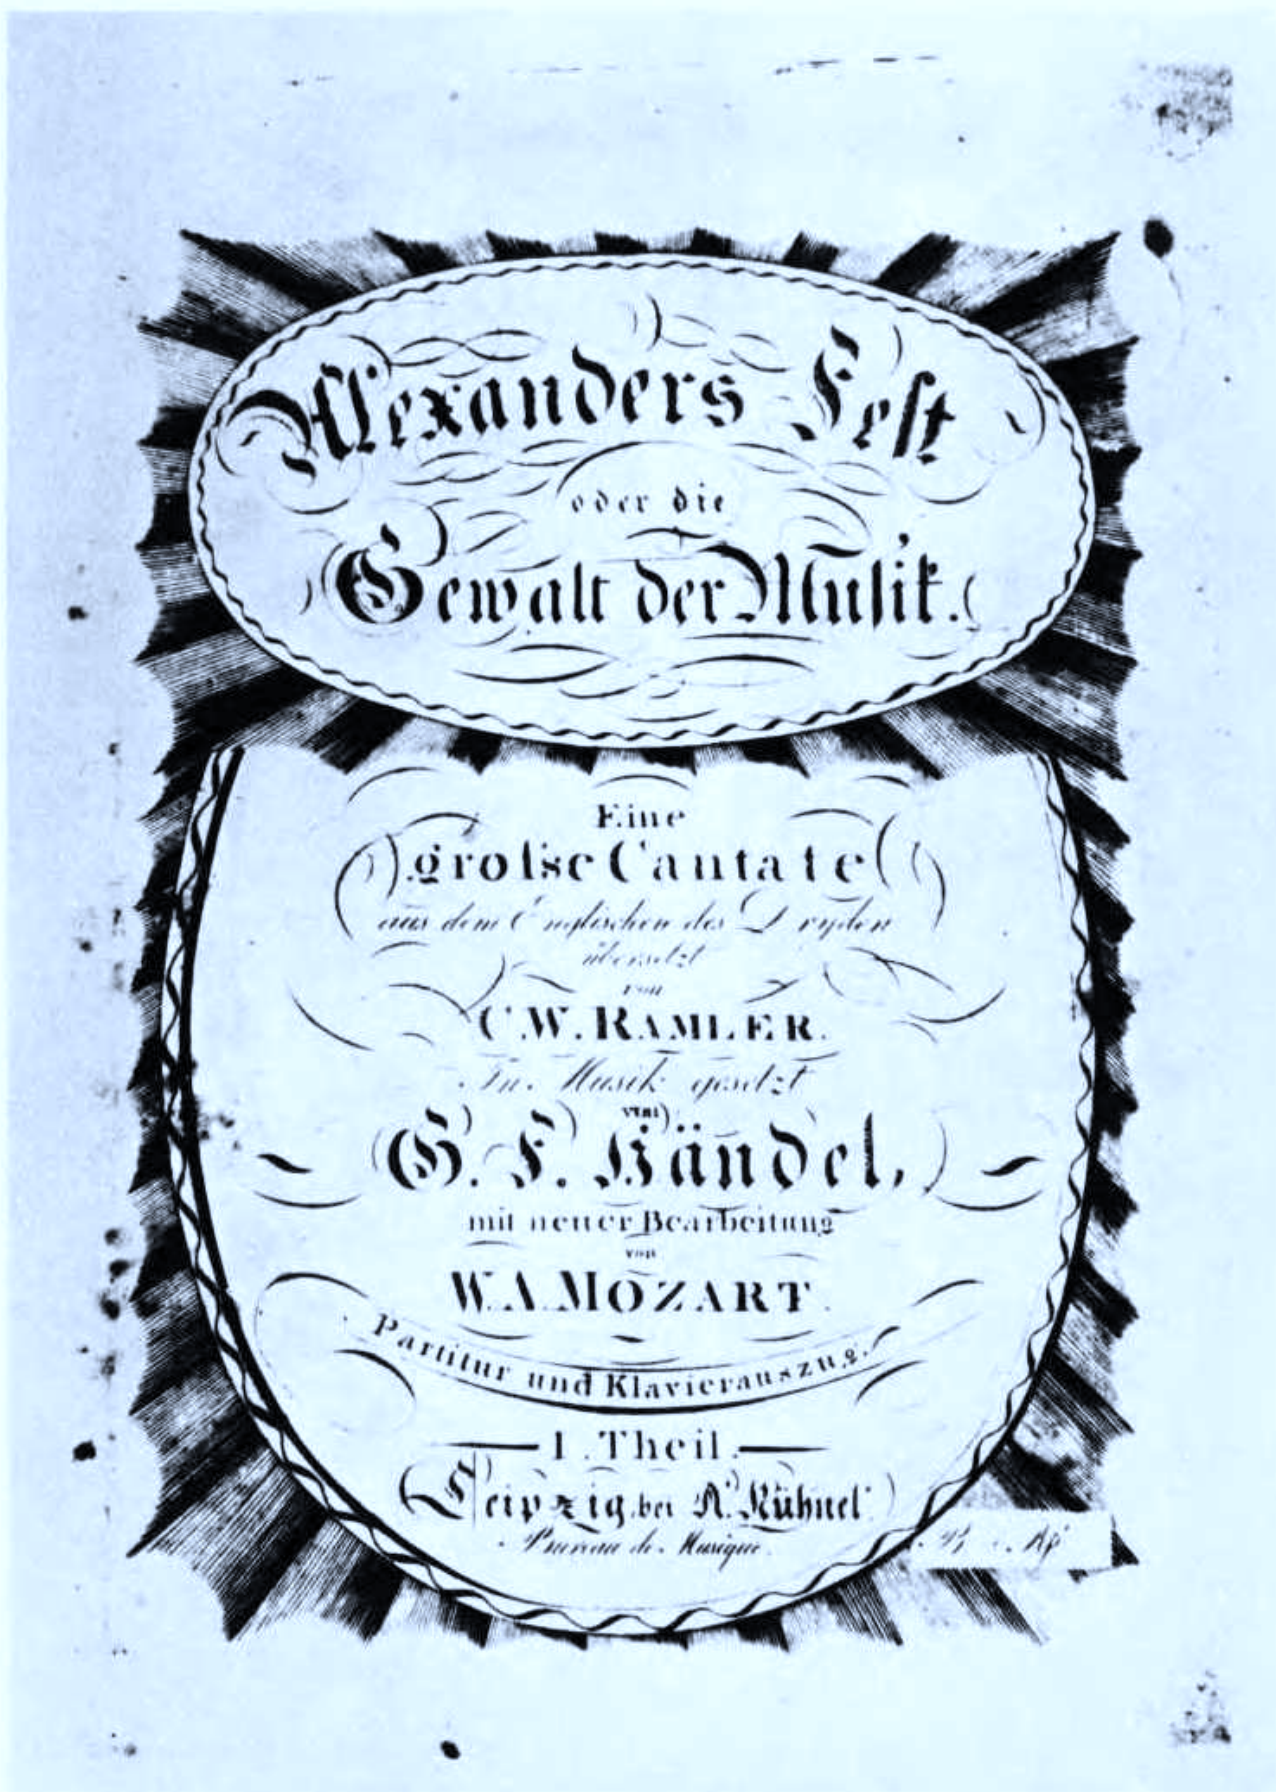 Alexanders Fest
oder die
Gewalt der Musik.
Eine
große Cantate
aus dem Englischen des Dryden
übersetzt
von
C.W. RAMLER.
In Musik gesetzt
von
G. F. Händel,
mit neuer Bearbeitung
von
W. A. MOZART.
Partitur und Klavierauszug.
I. Theil.
Leipzig, bei A. Kühnel
Bureau de Musique.